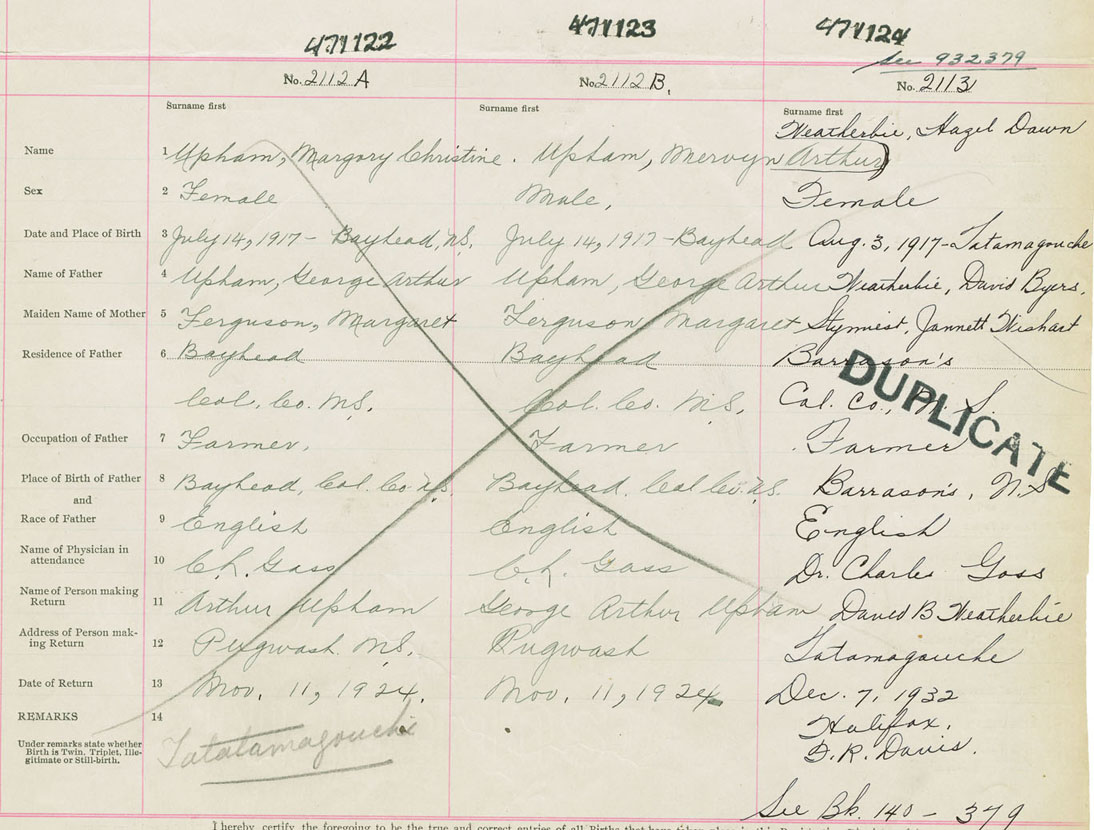 471122 471123 471124
See 932379
No. 2112 A No. 2112 B. No. 2113
Surname first Surname first Surname first
Weatherbie, Hazel Dawn
Name 1 Upham, Margory Christine. Upham, Mervyn Arthur
Sex 2 Female Male, Female
Date and Place of Birth 3 July 14, 1917 - Bayhead, N.S. July 14, 1917 - Bayhead Aug. 3, 1917 - Tatamagouche
Name of Father 4 Upham, George Arthur Upham, George Arthur Weatherbie, David Byers,
Maiden Name of Mother 5 Ferguson, Margaret Ferguson, Margaret Stymiest, Jannett Wishart
Residence of Father 6 Bayhead Bayhead Barrason's
Col. Co. N.S. Col. Co. N.S. Col. Co., N.S.
DUPLICATE
Occupation of Father 7 Farmer. Farmer Farmer
Place of Birth of Father 8 Bayhead, Col. Co. N.S. Bayhead, Col. Co. N.S. Barrason's, N.S
and
Race of Father 9 English English English
Name of Physician in
attendance 10 C.h. Gass C.h. Gass Dr. Charles Goss
Name of Person making
Return 11 Arthur Upham George Arthur Upham David B Weatherbie
Address of Person mak-
ing Return 12 Pugwash N.S. Pugwash Tatamagouche
Date of Return 13 Nov. 11, 1924. Nov. 11, 1924 Dec. 7, 1932
REMARKS 14 Halifax.
Under remarks state whether
Birth is Twin, Triplet, Ille-
gitimate or Still-birth.
Tatatamagouche
D.R. Davis.
See Bk. 140 - 379
I hereby certify the foregoing to be the true and correct entries of all Births that have taken place in this